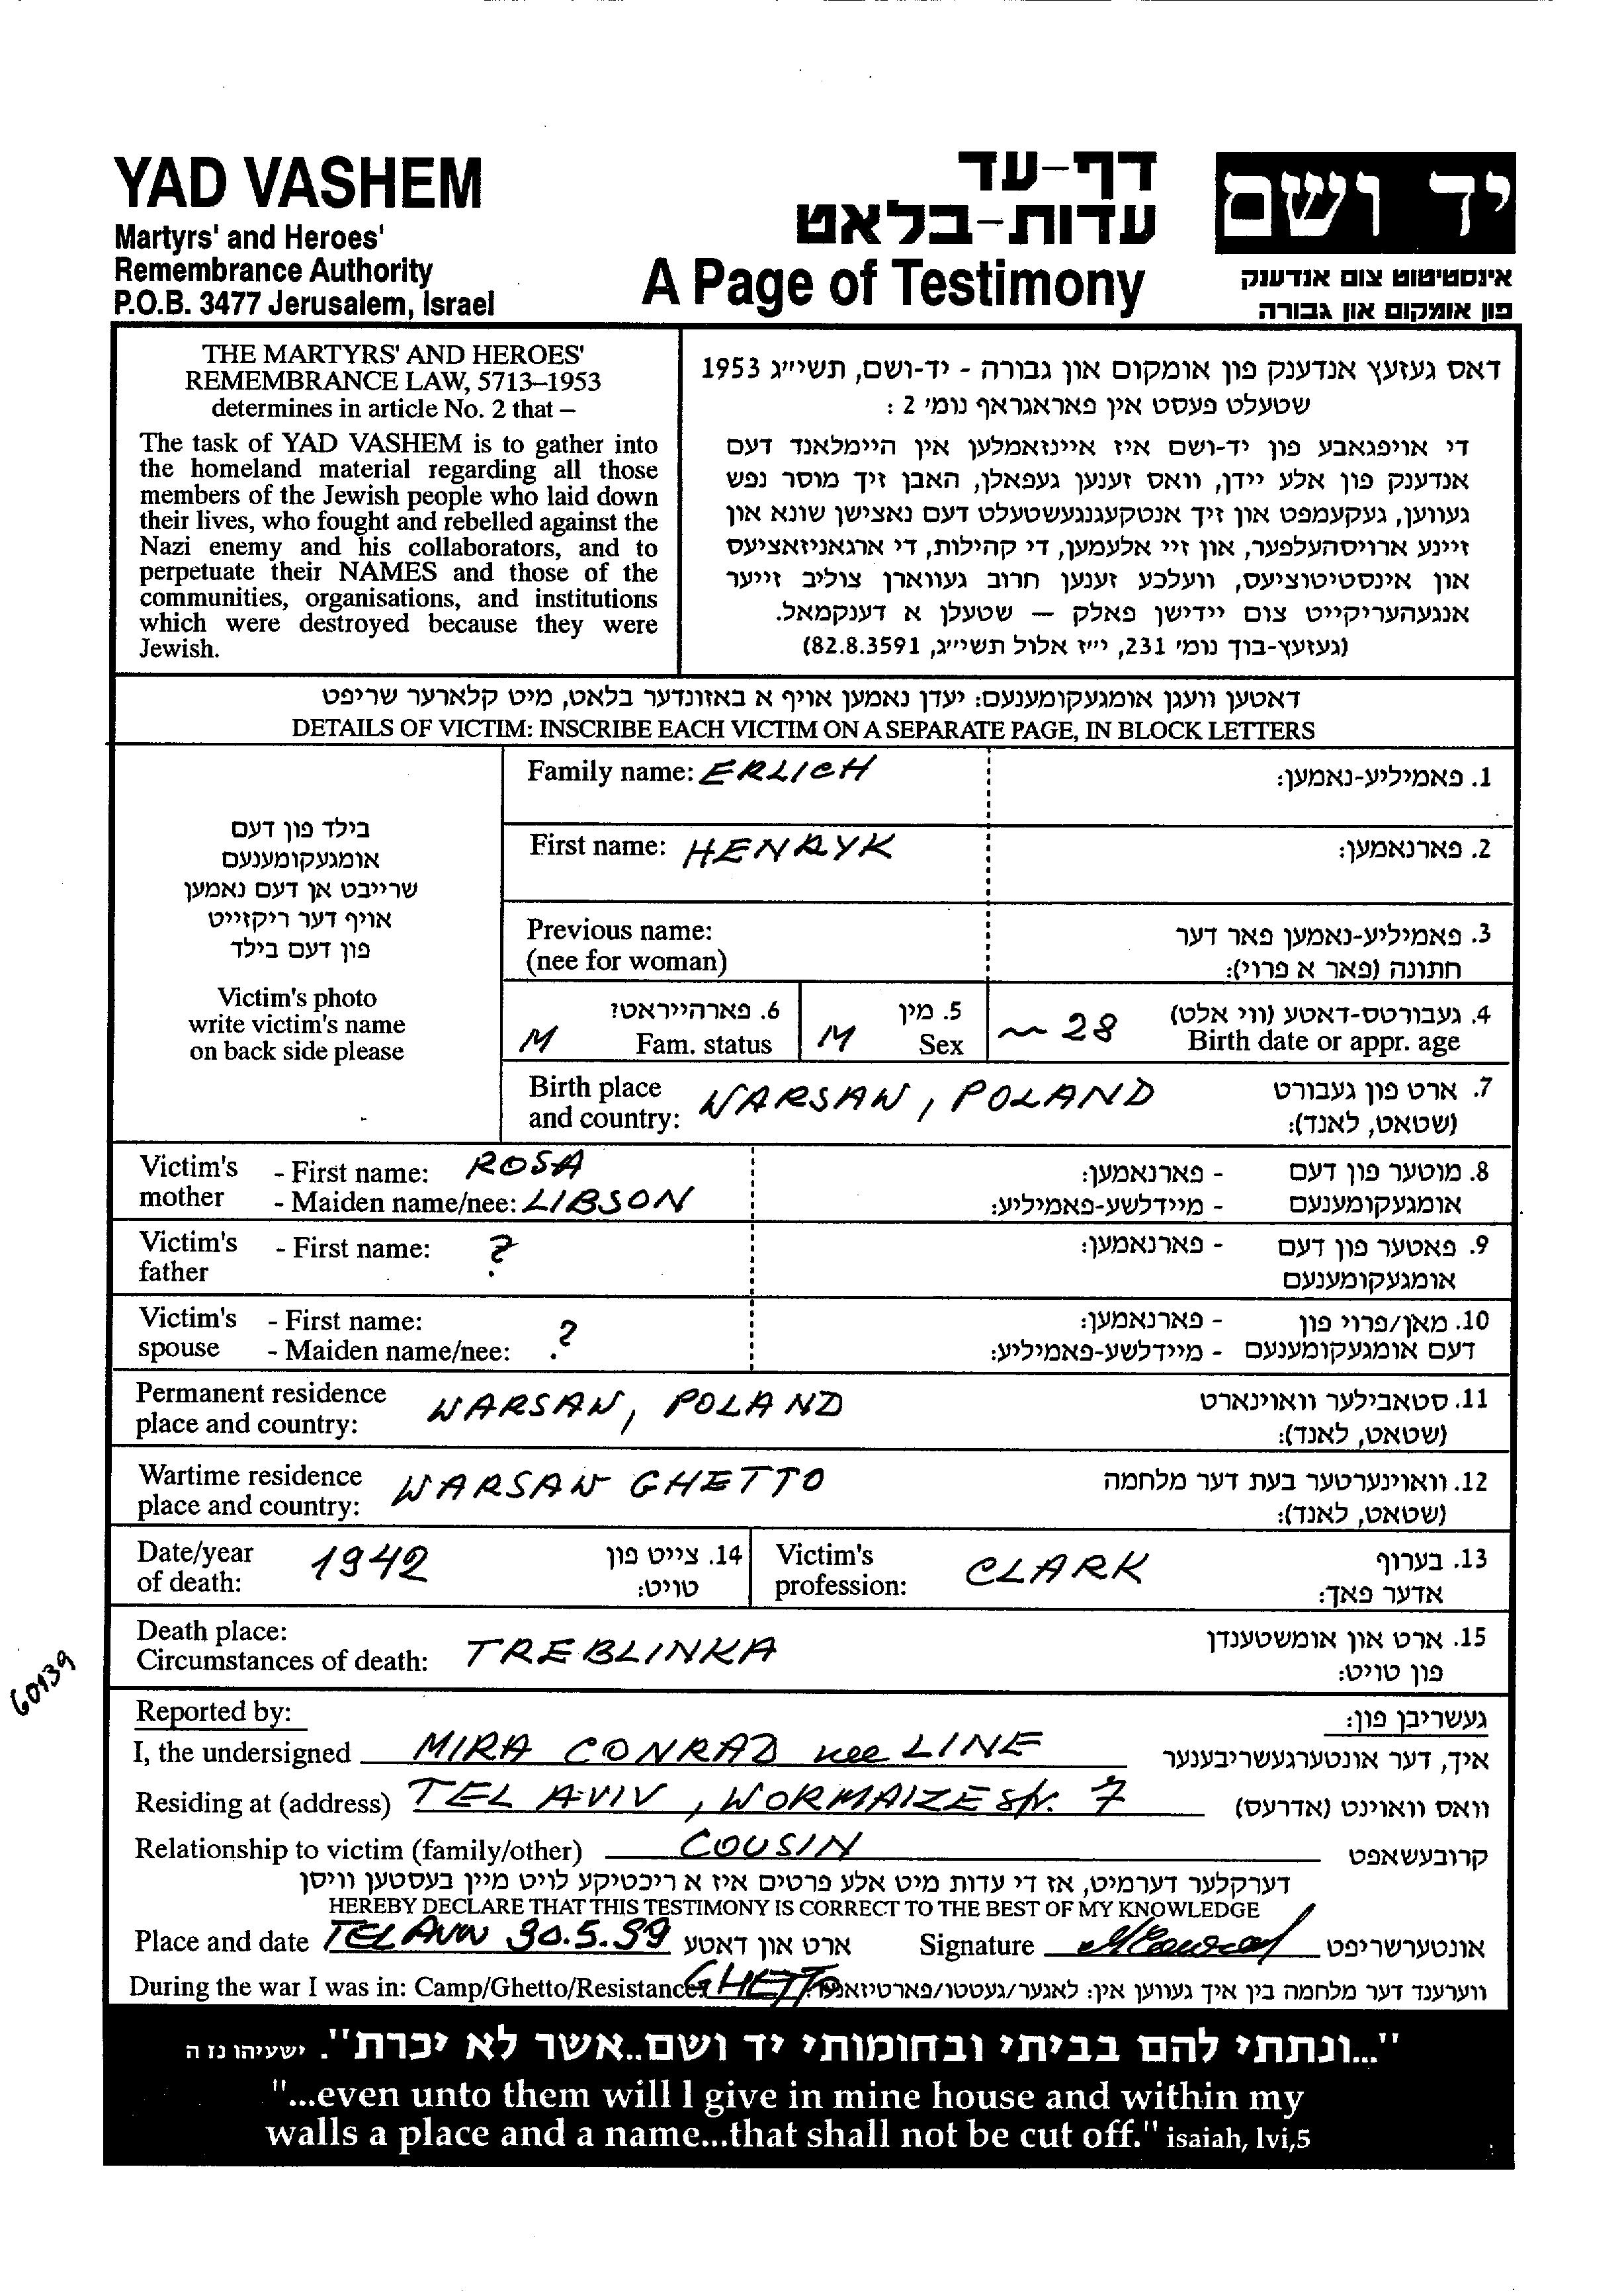 YAD VASHEM
Martyrs' and Heroes'
Remembrance Authority
P.O.B. 3477 Jerusalem, Israel
דף-עד
עדות-בלאט
A Page of Testimony
יד ושם
אינסטיטוט צום אנדענק
פון אומקום און גבורה
THE MARTYRS' AND HEROES'
REMEMBRANCE LAW, 5713–1953
determines in article No. 2 that –
The task of YAD VASHEM is to gather into
the homeland material regarding all those
members of the Jewish people who laid down
their lives, who fought and rebelled against the
Nazi enemy and his collaborators, and to
perpetuate their NAMES and those of the
communities, organisations, and institutions
which were destroyed because they were
Jewish.
דאס געזעץ אנדענק פון אומקום און גבורה - יד-ושם, תשי״ג 1953
שטעלט פעסט אין פאראגראף נומ׳ 2 :
די אויפגאבע פון יד-ושם איז איינזאמלען אין היימלאנד דעם
אנדענק פון אלע יידן, וואס זענען געפאלן, האבן זיך מוסר נפש
געווען, געקעמפט און זיך אנטקעגנגעשטעלט דעם נאצישן שונא און
זיינע ארויסהעלפער, און זיי אלעמען, די קהילות, די ארגאניזאציעס
און אינסטיטוציעס, וועלכע זענען חרוב געווארן צוליב זייער
אנגעהעריקייט צום יידישן פאלק — שטעלן א דענקמאל.
(געזעץ-בוך נומ׳ 231, י״ז אלול תשי״ג, 82.8.3591)
דאטען וועגן אומגעקומענעם: יעדן נאמען אויף א באזונדער בלאט, מיט קלארער שריפט
DETAILS OF VICTIM: INSCRIBE EACH VICTIM ON A SEPARATE PAGE, IN BLOCK LETTERS
בילד פון דעם
אומגעקומענעם
שרייבט אן דעם נאמען
אויף דער ריקזייט
פון דעם בילד
Victim's photo
write victim's name
on back side please
Family name: ERLICH 1. פאמיליע-נאמען:
First name: HENRYK 2. פארנאמען:
Previous name: 3. פאמיליע-נאמען פאר דער
(nee for woman) חתונה (פאר א פרוי):
6. פארהייראט? 5. מין 4. געבורטס-דאטע (ווי אלט)
M Fam. status M Sex ~ 28 Birth date or appr. age
Birth place 7. ארט פון געבורט
and country: WARSAW, POLAND (שטאט, לאנד):
Victim's - First name: ROSA - פארנאמען: 8. מוטער פון דעם
mother - Maiden name/nee: LIBSON - מיידלשע-פאמיליע: אומגעקומענעם
Victim's - First name: ? - פארנאמען: 9. פאטער פון דעם
father אומגעקומענעם
Victim's - First name: - פארנאמען: 10. מאן/פרוי פון
spouse - Maiden name/nee: ? - מיידלשע-פאמיליע: דעם אומגעקומענעם
Permanent residence 11. סטאבילער וואוינארט
place and country: WARSAW, POLAND (שטאט, לאנד):
Wartime residence 12. וואוינערטער בעת דער מלחמה
place and country: WARSAW GHETTO (שטאט, לאנד):
Date/year 1942 14. צייט פון Victim's CLARK 13. בערוף
of death: טויט: profession: אדער פאך:
Death place: 15. ארט און אומשטענדן
Circumstances of death: TREBLINKA פון טויט:
60139
Reported by: געשריבן פון:
I, the undersigned MIRA CONRAD nee LINE איך, דער אונטערגעשריבענער
Residing at (address) TEL AVIV, WORMAIZE str. 7 וואס וואוינט (אדרעס)
Relationship to victim (family/other) COUSIN קרובעשאפט
דערקלער דערמיט, אז די עדות מיט אלע פרטים איז א ריכטיקע לויט מיין בעסטען וויסן
HEREBY DECLARE THAT THIS TESTIMONY IS CORRECT TO THE BEST OF MY KNOWLEDGE
Place and date TEL AVIV 30.5.99 ארט און דאטע Signature MConrad אונטערשריפט
During the war I was in: Camp/Ghetto/Resistance: GHETTO ווערענד דער מלחמה בין איך געווען אין: לאגער/געטטו/פארטיזאנער
"...ונתתי להם בביתי ובחומותי יד ושם..אשר לא יכרת". ישעיהו נז ה
"...even unto them will I give in mine house and within my
walls a place and a name...that shall not be cut off." isaiah, lvi,5